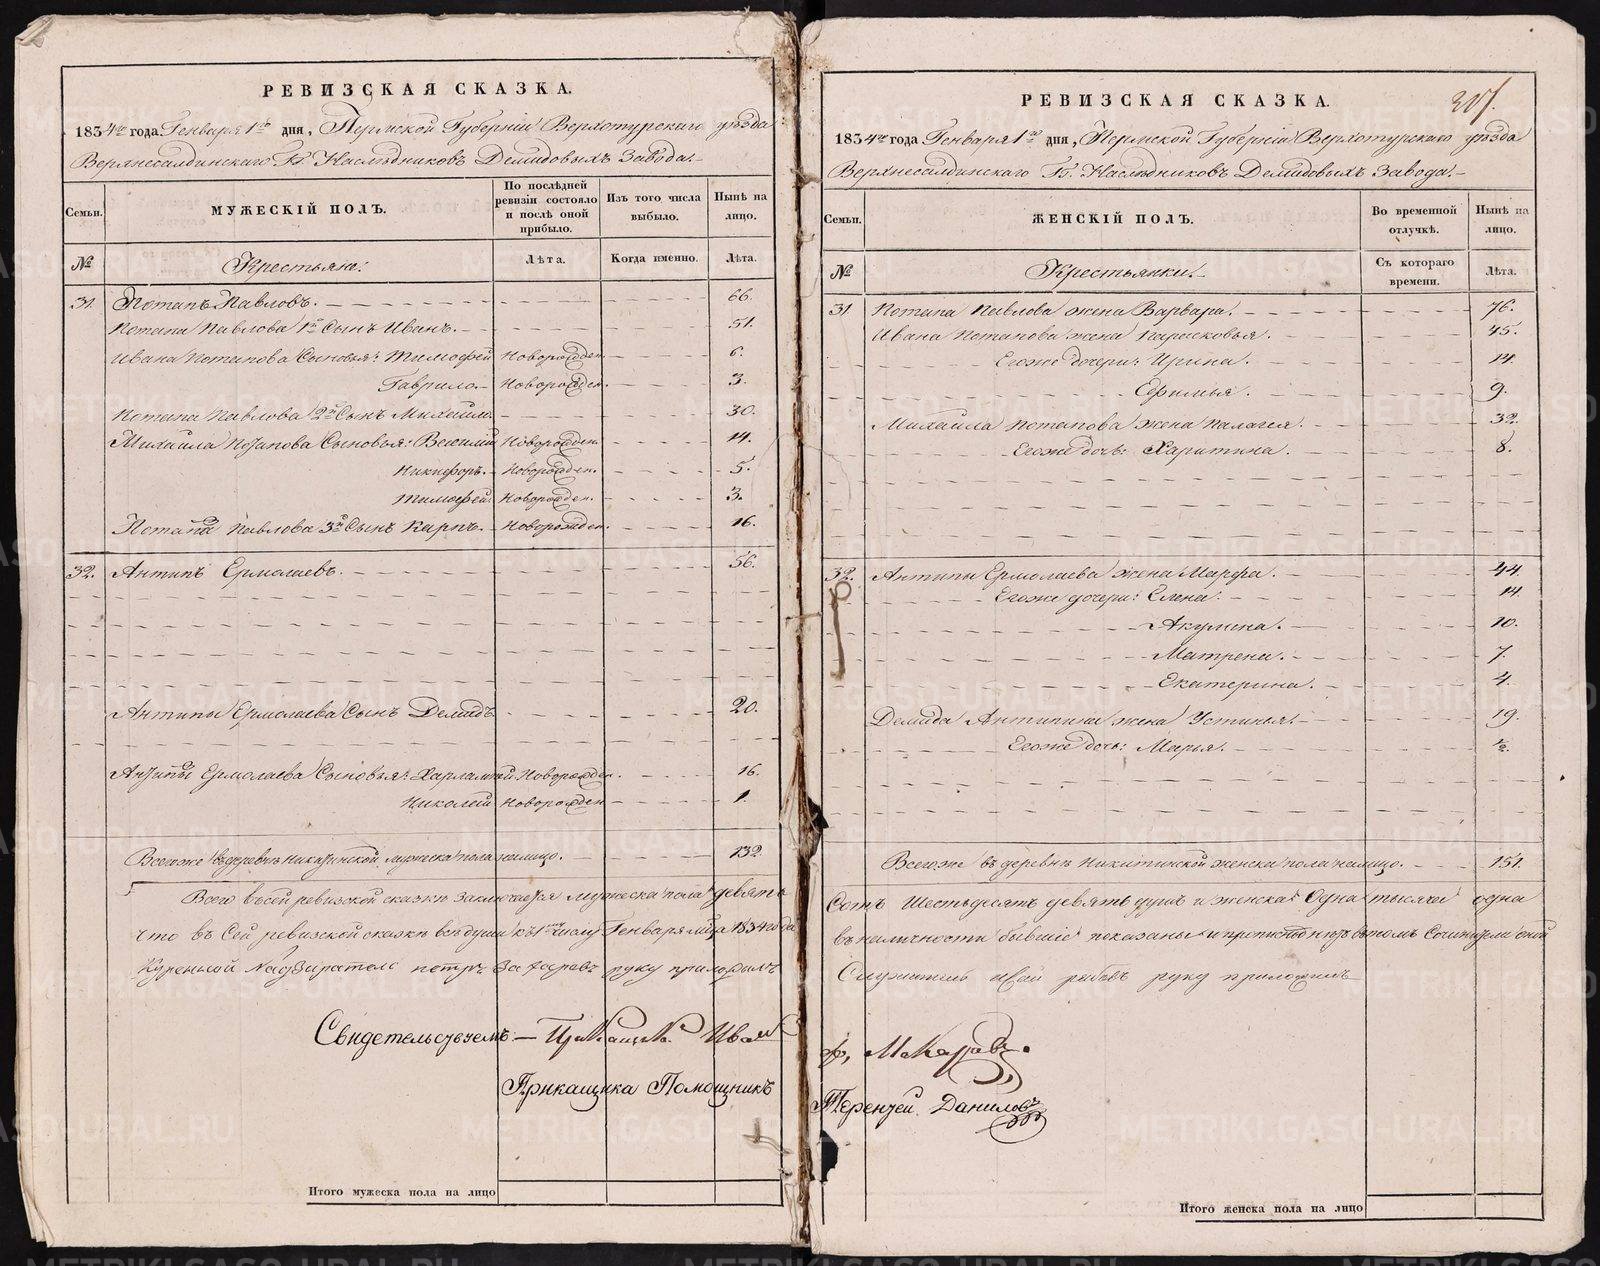 РЕВИЗСКАЯ СКАЗКА.
1834го года Генваря 1го дня, Пермской Губерніи Верхотурскаго уѣзда
Верхнесалдинскаго Г. Наслѣдниковъ Демидовыхъ Завода.
Семьи.
МУЖЕСКІЙ ПОЛЪ.
По послѣдней ревизіи состояло и послѣ оной прибыло.
Изъ того числа выбыло.
Нынѣ на лицо.
№
Крестьяне.
Лѣта.
Когда именно.
Лѣта.
31. Потапъ Павловъ. 66.
Потапа Павлова 1й Сынъ Иванъ. 51.
Ивана Потапова Сыновья: Тимофей Новорожден. 6.
Гаврило. Новорожден. 3.
Потапа Павлова 2й Сынъ Михайло. 30.
Михайла Потапова Сыновья: Василий Новорожден. 14.
Никифоръ. Новорожден. 5.
Тимофей. Новорожден. 3.
Потапа Павлова 3й Сынъ Карпъ. Новорожден. 16.
32. Антипъ Ермолаевъ. 56.
Антипы Ермолаева Сынъ Демидъ. 20.
Антипы Ермолаева Сыновья: Харлампий Новорожден. 16.
Николай Новорожден 1.
Всегоже въ деревнѣ Никитинской мужеска пола налицо. 132
Всего въ сей ревизской сказкѣ заключается мужеска пола девять
что въ Сей ревизской сказкѣ всѣ души къ 1му числу Генваря 1834 года
Куренной Надзиратель петръ руку приложилъ
Свидетельствуемъ Прикащикъ Иванъ
Прикащика Помощникъ
Итого мужеска пола на лицо
РЕВИЗСКАЯ СКАЗКА.
1834го года Генваря 1го дня, Пермской Губерніи Верхотурскаго уѣзда
Верхнесалдинскаго Г. Наслѣдниковъ Демидовыхъ Завода.
Семьи.
ЖЕНСКІЙ ПОЛЪ.
Во временной отлучкѣ.
Нынѣ на лицо.
№
Крестьянки.
Съ котораго времени.
Лѣта.
31 Потапа Павлова жена Варвара. 76.
Ивана Потапова жена Парасковья. 45.
Егоже дочери: Ирина. 14.
Ефимья. 9.
Михайла Потапова жена Палагея. 32.
Егоже дочь: Харитина. 8.
32. Антипы Ермолаева жена Марфа. 44.
Егоже дочери: Елена. 14.
Акулина. 10.
Матрена. 7.
Екатерина. 4.
Демида Антипина жена Устинья. 19.
Егоже дочь: Марья. ½.
Всегоже въ деревнѣ Никитинской женска пола налицо. 151.
Сотъ Шестьдесятъ девять душъ и женска Одна тысяча одна
въ наличности бывшіе показаны и прописныхъ нѣтъ въ томъ Сочинители оной
Служитель руку приложилъ
Ф, Макаровъ.
Терентей Даниловъ
Итого женска пола на лицо
METRIKI.GASO-URAL.RU